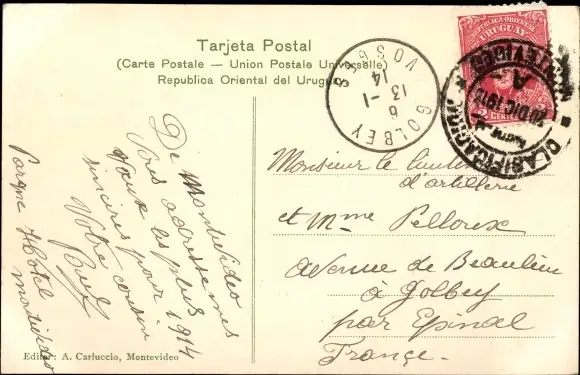 Tarjeta Postal
(Carte Postale — Union Postale Universelle)
Republica Oriental del Uruguay
REPUBLICA ORIENTAL
URUGUAY
CLASIFICACION
MONTEVIDEO
20 DIC 1913
GOLBEY
VOSGES
6 -1
13
14
De Montevideo
vous adressons
vœux les plus
sincères pour 1914
Votre cousin
Hotel
Montevideo
Monsieur le
d'artillerie
et Mme Pelloux
Avenue de Beaulieu
à Golbey
par Epinal
France.
Editor: A. Carluccio, Montevideo